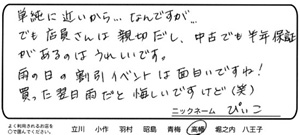 単純に近いから…なんですが…
でも店員さんは親切だし、中古でも半年保証
があるのはうれしいです。
雨の日の割引イベントは面白いですね！
買った翌日雨だと悔しいですけど（笑）
ニックネーム ぴぃこ
よく利用されるお店に○をしてください 立川 小作 羽村 昭島 青梅 高幡 堀之内 八王子